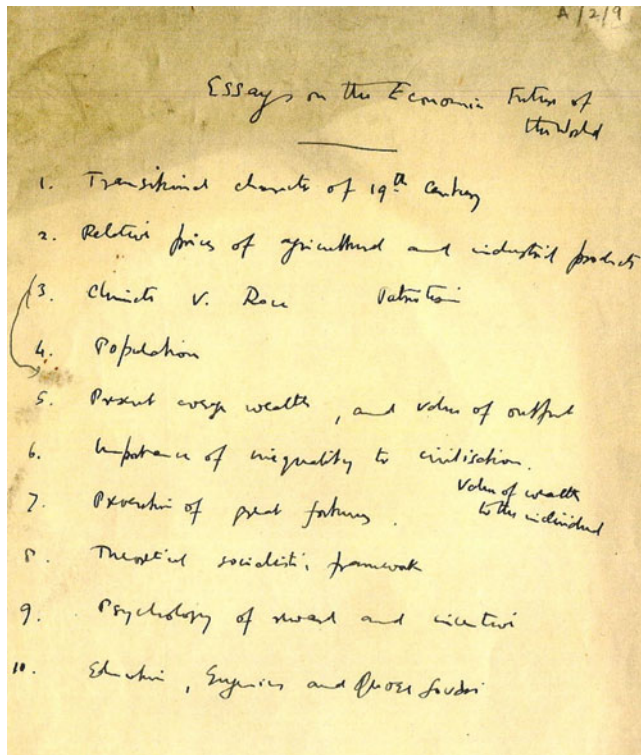 A/2/9
Essays on the Economic Future of
the World
1. Transitional character of 19th century
2. Relative prices of agricultural and industrial products
3. Climate v. Race
4. Population
5. Present average wealth, and volume of output
6. Importance of inequality to civilisation.
Value of wealth
7. Prevention of great fortunes.
to the individual
8. Theoretical socialistic framework
9. Psychology of reward and incentive
10. Education, Eugenics and